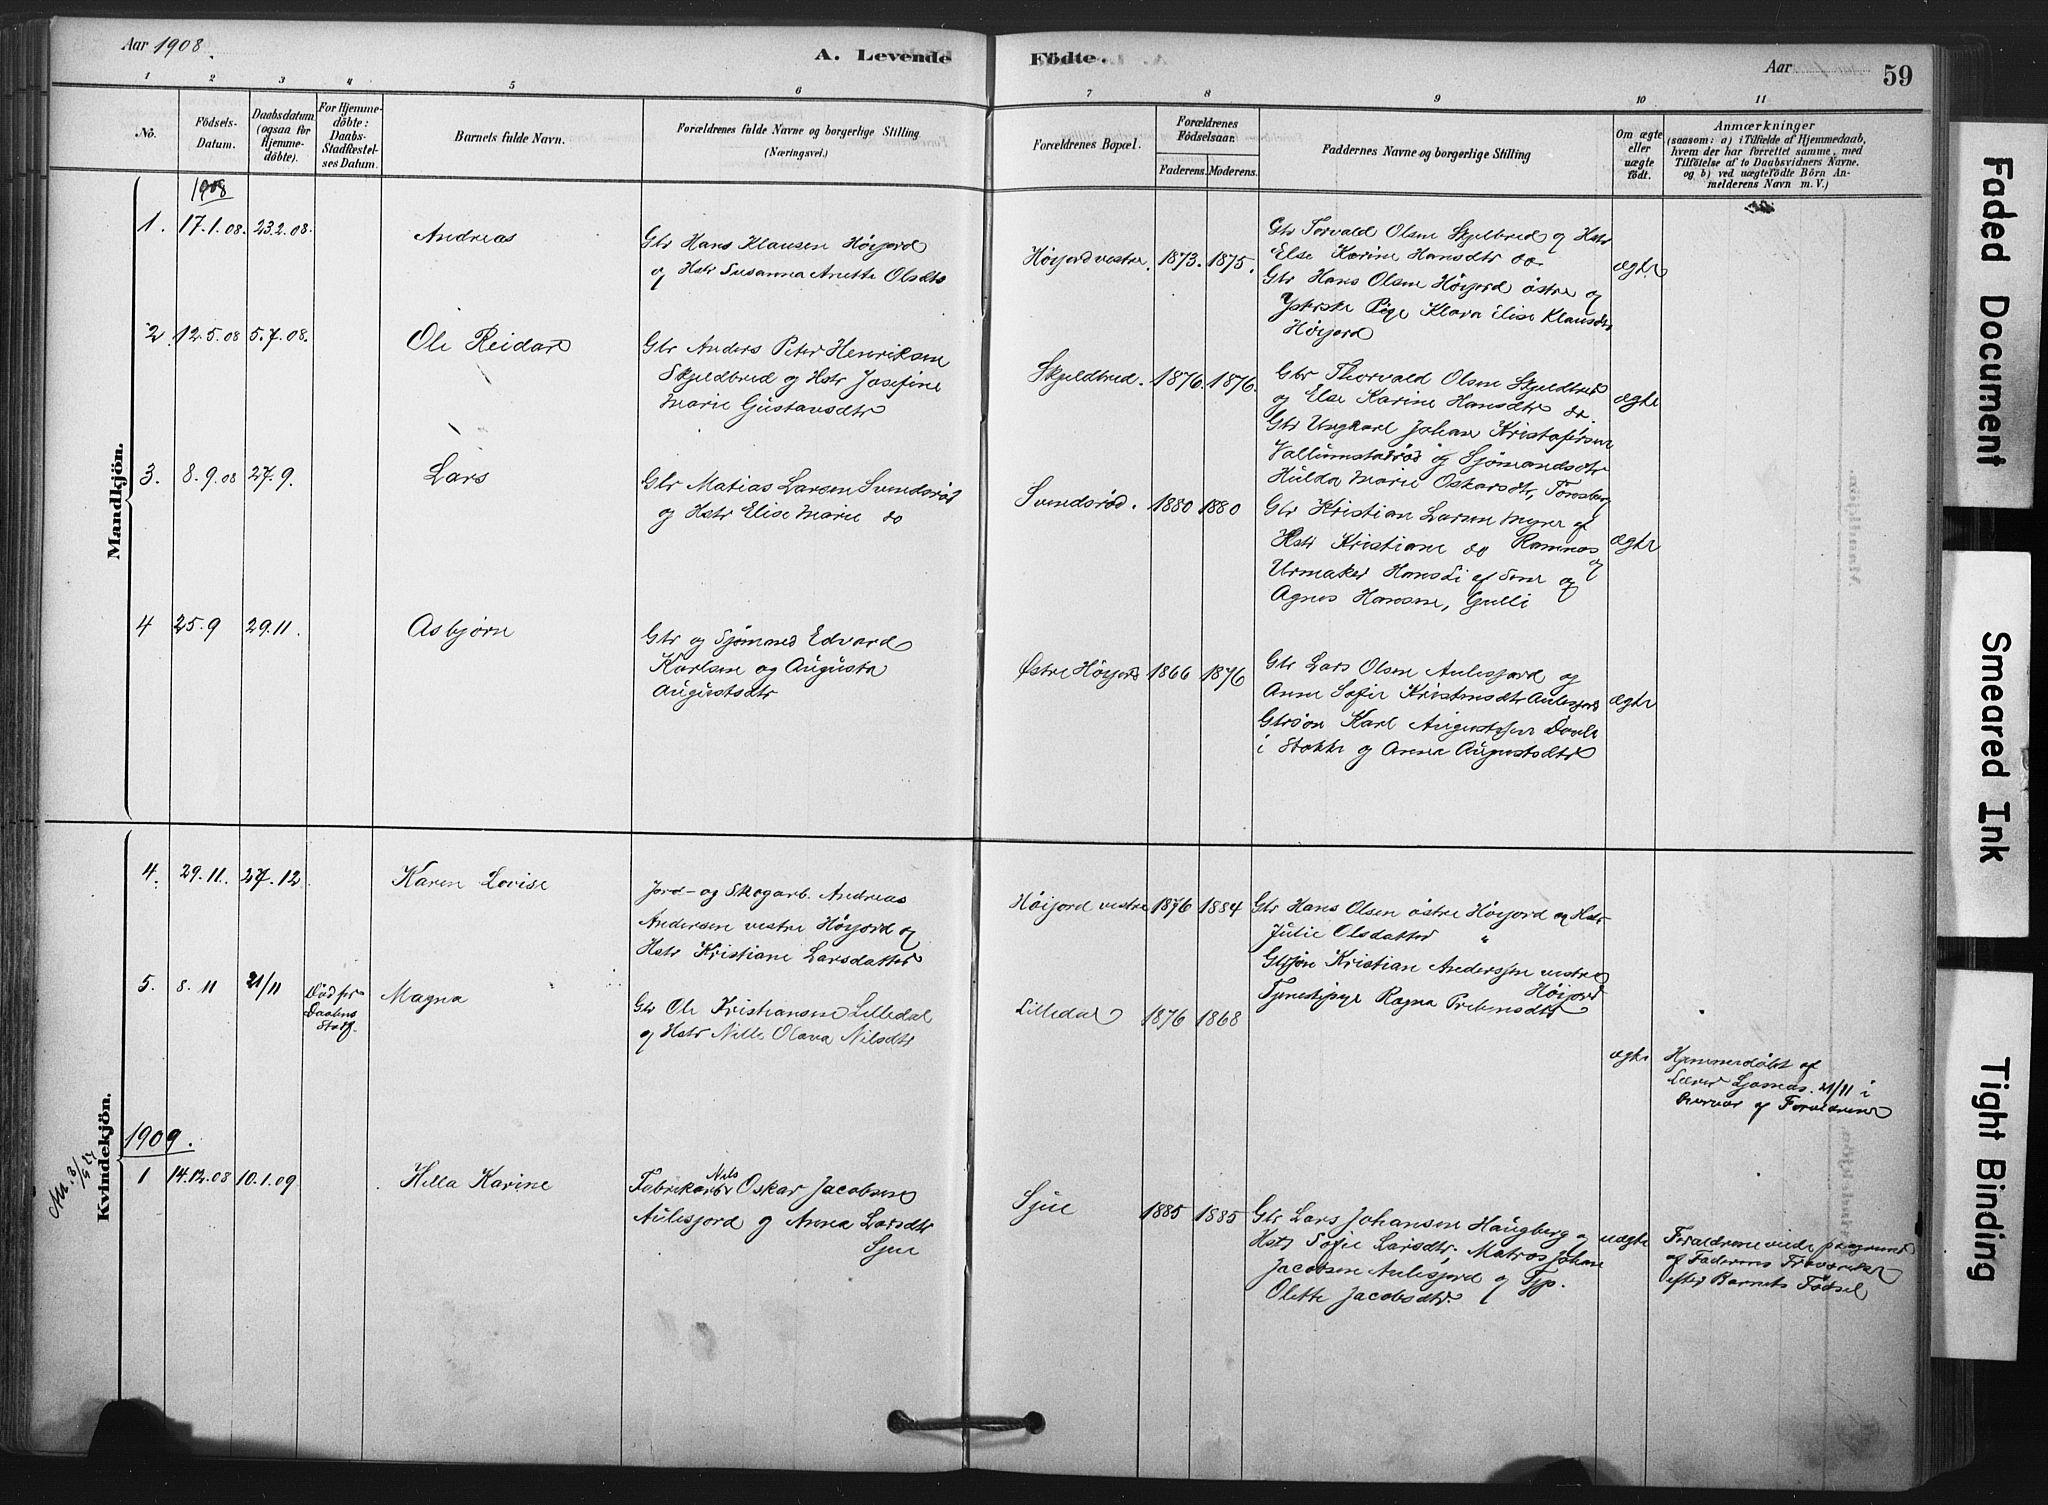 Aar 1908.
A. Levende Födte.
Aar
59
1 2 3 4 5 6 7 8 9 10 11
No.
Födsels-Datum.
Daabsdatum (ogsaa for Hjemmedöbte).
For Hjemmedöbte: Daabs-Stadfæstelses Datum.
Barnets fulde Navn.
Forældrenes fulde Navne og borgerlige Stilling
(Næringsvei.)
Forældrenes Bopæl.
Forældrenes Födselsaar.
Faderens. Moderens.
Faddernes Navne og borgerlige Stilling
Om ægte eller uægte födt.
Anmærkninger
(saasom: a) i Tilfælde af Hjemmedaab, hvem der har forrettet samme, med Tilföielse af to Daabsvidners Navne. og b) ved uægtefödte Börn Anmelderens Navn m. V.)
Mandkjön.
1908
1. 17.1.08. 23.2.08.
Andreas
Gbr Hans Klausen Höijord
og Hstr Susanna Anette Olsdtr
Höijord vestre. 1873. 1875.
Gbr Torvald Olsen Skjelbred og Hstr
Else Karine Hansdtr do
Gbr Hans Olsen Höijord östre og
Pige Klara Elise Klausdtr
Höijord
ægte
2. 12.5.08 5.7.08.
Ole Reidar
Gbr Anders Peter Henriksen
Skjeldbred og Hstr Josefine
Marie Gustavsdtr
Skjeldbred. 1876. 1876.
Gbr Thorvald Olsen Skjeldbred
og Else Karine Hansdtr do.
Gbr Ungkarl Johan Kristofersen
og Sjømandsdtr
Hulda Marie Oskarsdtr, Tønsberg
ægte
3. 8.9.08 27.9.
Lars
Gbr Matias Larsen Svendsrød
og Hstr Elise Marie do
Svendsrød. 1880 1880
Gbr Kristian Larsen Myrer af
Hstr Kristiane do Ramnes og
Urmaker Hans Li af Sem og
Agnes Hansen, Gulli
ægte
4 25.9 29.11.
Asbjørn
Gbr og Sjømand Edvard
Karlsen og Augusta
Augustsdtr
Østre Höijord 1866 1876
Gbr Lars Olsen Aulesjord og
Anne Sofie Kristensdtr Aulesjord
Gbrsön Karl Augustsen
i Stokke og Anna Augustsdtr
ægte
Kvindekjön.
4. 29.11. 27.12
Karen Lovise
Jord- og Skogarb. Andreas
Andersen vestre Höijord og
Hstr Kristiane Larsdatter
Höijord vestre 1876 1884
Gbr Hans Olsen östre Höijord og Hstr
Julie Olsdatter "
Gbrsön Kristian Andersen vestre
Höijord
Tjenestepige Ragna
5. 8.11 21/11
Död før
Daabens
Stadf.
Magna
Gbr Ole Kristiansen Lilledal
og Hstr Nille Olava Nilsdtr
Lilledal 1876 1868
ægte
Hjemmedöbt af
Lærer 21/11 i
Nærvær af Forældrene
1909.
1 14.12.08 10.1.09
Hella Karine
Fabrikarb Nils Oskar Jacobsen
Aulesjord og Anna Larsdtr
Sjue
Sjue 1885 1885
Gbr Lars Johansen Haugberg og
Hstr Sofie Larsdtr. Matros Johan
Jacobsen Aulesjord og Tjp.
Olette Jacobsdtr.
uægte
Forældrene viede paagrund
af Faderens Fraværelse
efter Barnets Födsel
Faded Document
Smeared Ink
Tight Binding